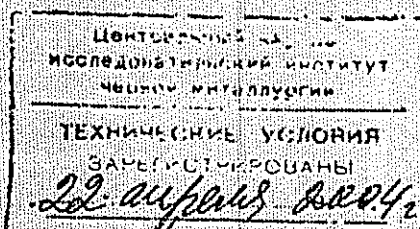 Центральный научно
исследовательский институт
черной металлургии
ТЕХНИЧЕСКИЕ УСЛОВИЯ
ЗАРЕГИСТРИРОВАНЫ
22 апреля 2004 г